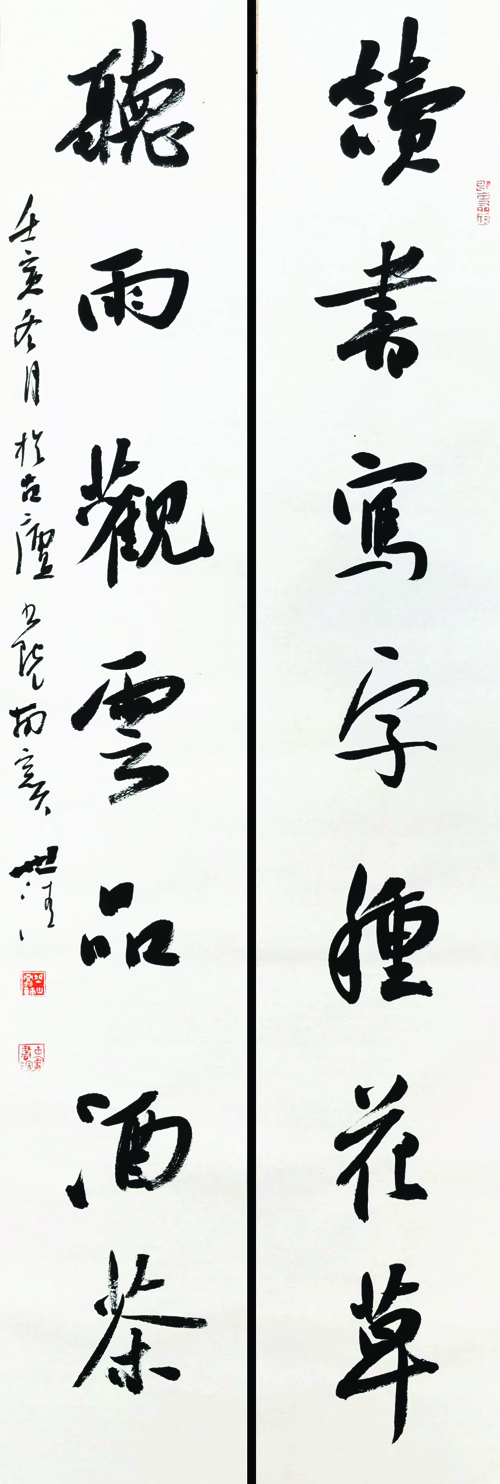 讀書寫字種花草
聽雨觀雲品酒茶
壬寅冬月於古廬書院南窗 世清